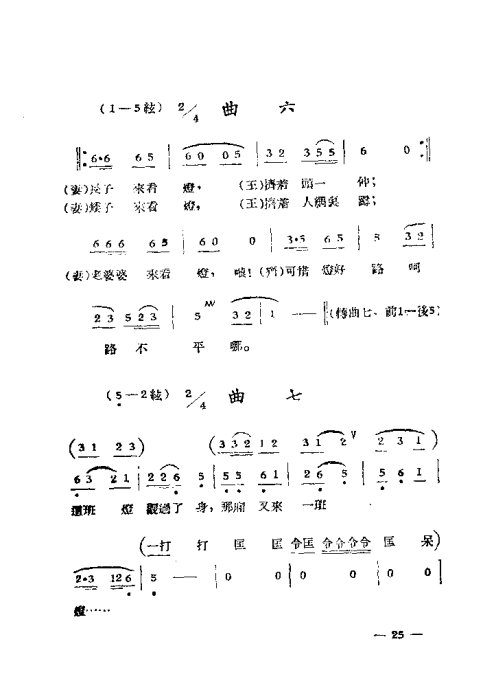 (1—5絃) 2/4 曲 六
6·6 6 5 | 6 0 0 5 | 3 2 3 5 5 | 6 0
(妻)長子 來看 燈, (王)擠着 頭一 伸;
(妻)矮子 來看 燈, (王)擠着 人縫裏 蹲;
6 6 6 6 5 | 6 0 0 | 3·5 6 5 | 5 3 2 |
(妻)老婆婆 來看 燈, 哦! (齊)可惜 燈好 路 呵
2 3 5 2 3 | 5 3 2 | 1 —— (轉曲七、前1—後5)
路 不 平 哪。
(5—2絃) 2/4 曲 七
(3 1 2 3) (3 3 2 1 2 3 1 2 2 3 1)
6 3 2 1 | 2 2 6 5 | 5 5 6 1 | 2 6 5 | 5 6 1 |
這班 燈 觀過了 身, 那廂 又來 一班
(一打 打 匡 匡 令匡 令令令令 匡 呆)
2·3 1 2 6 | 5 —— | 0 0 | 0 0 | 0 0 |
燈……
— 25 —